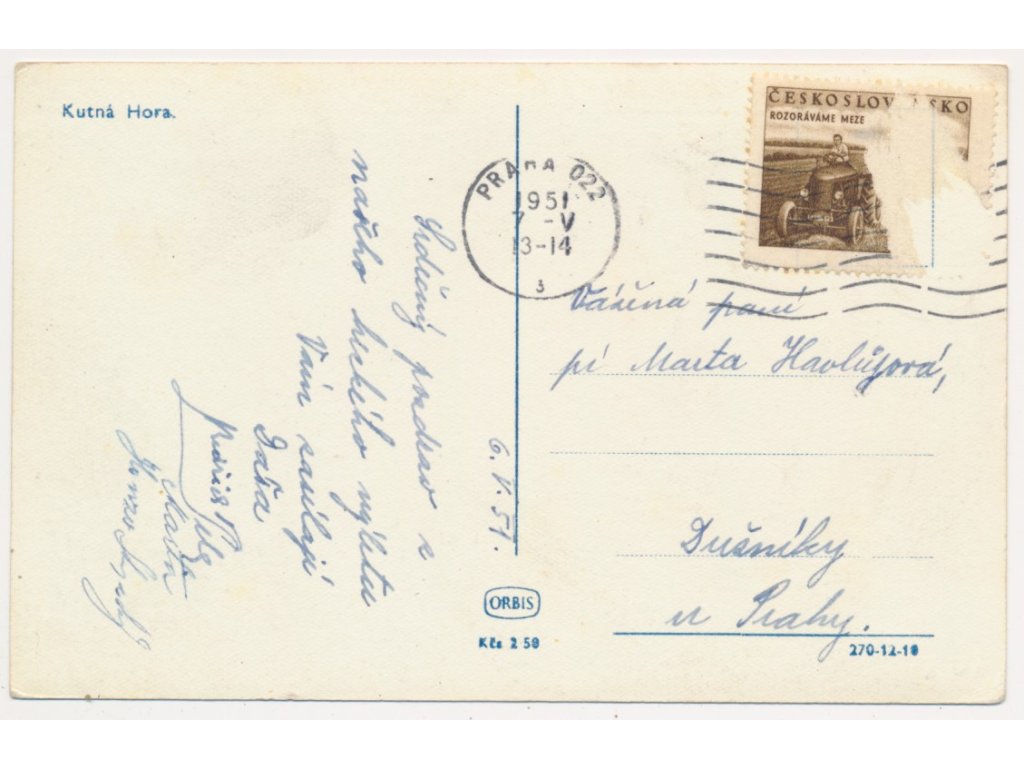 Kutná Hora.
ČESKOSLOV SKO
ROZORÁVÁME MEZE
PRAHA 022
1951
7 -V
13-14
3
Srdečný pozdrav z
našeho hezkého výletu
Vám zasílají
Dáša
6. V. 51.
Vážená paní
pí Marta Havlůjová,
Dušníky
u Prahy.
ORBIS
Kčs 2 50
270-12-10